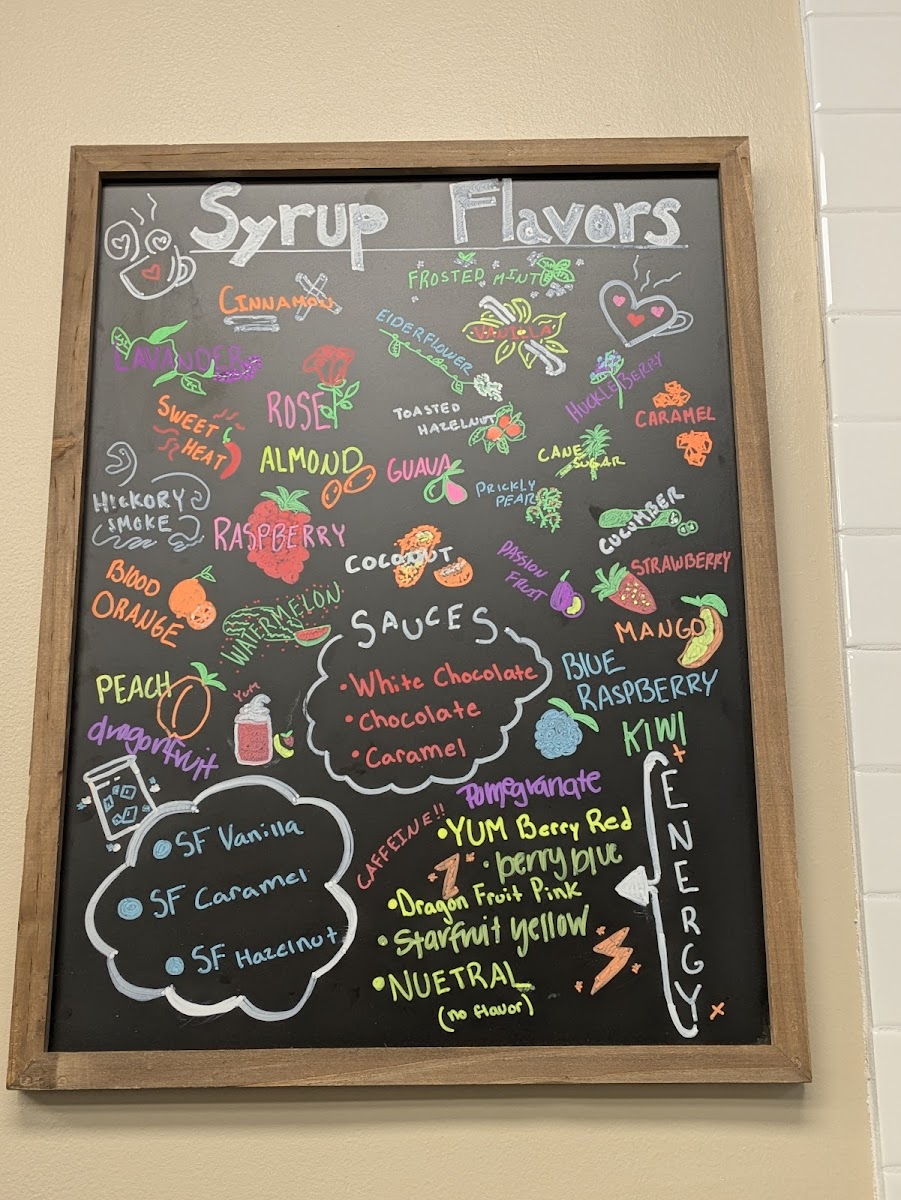 Syrup Flavors
FROSTED MINT
CINNAMON
VANILLA
ElDERFLOWER
LAVANDER
HUCKLEBERRY
ROSE
TOASTED
HAZELNUT
CARAMEL
SWEET
HEAT
ALMOND
GUAVA
CANE
SUGAR
PRICKLY
PEAR
HICKORY
SMOKE
RASPBERRY
CUCUMBER
COCONUT
PASSION
FRUIT
STRAWBERRY
BLOOD
ORANGE
WATERMELON
MANGO
SAUCES
• White Chocolate
• Chocolate
• Caramel
BLUE
RASPBERRY
PEACH
YUM
dragonfruit
KIWI
Pomegranate
• SF Vanilla
• SF Caramel
• SF Hazelnut
CAFFEINE!!
ENERGY
• YUM Berry Red
• berry blue
• Dragon Fruit Pink
• Starfruit yellow
• NUETRAL
(no flavor)